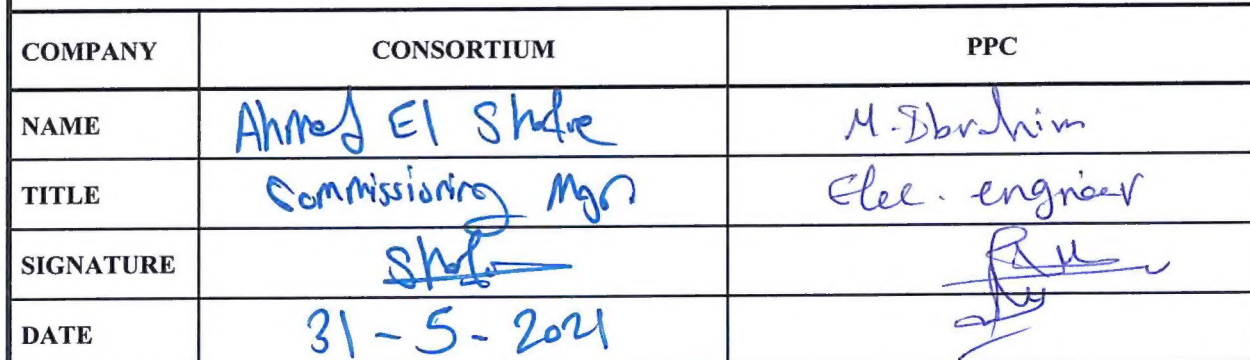 COMPANY CONSORTIUM PPC
NAME Ahmed El M. Ibrahim
TITLE Commissioning Mgr Elec. engineer
SIGNATURE
DATE 31-5-2021